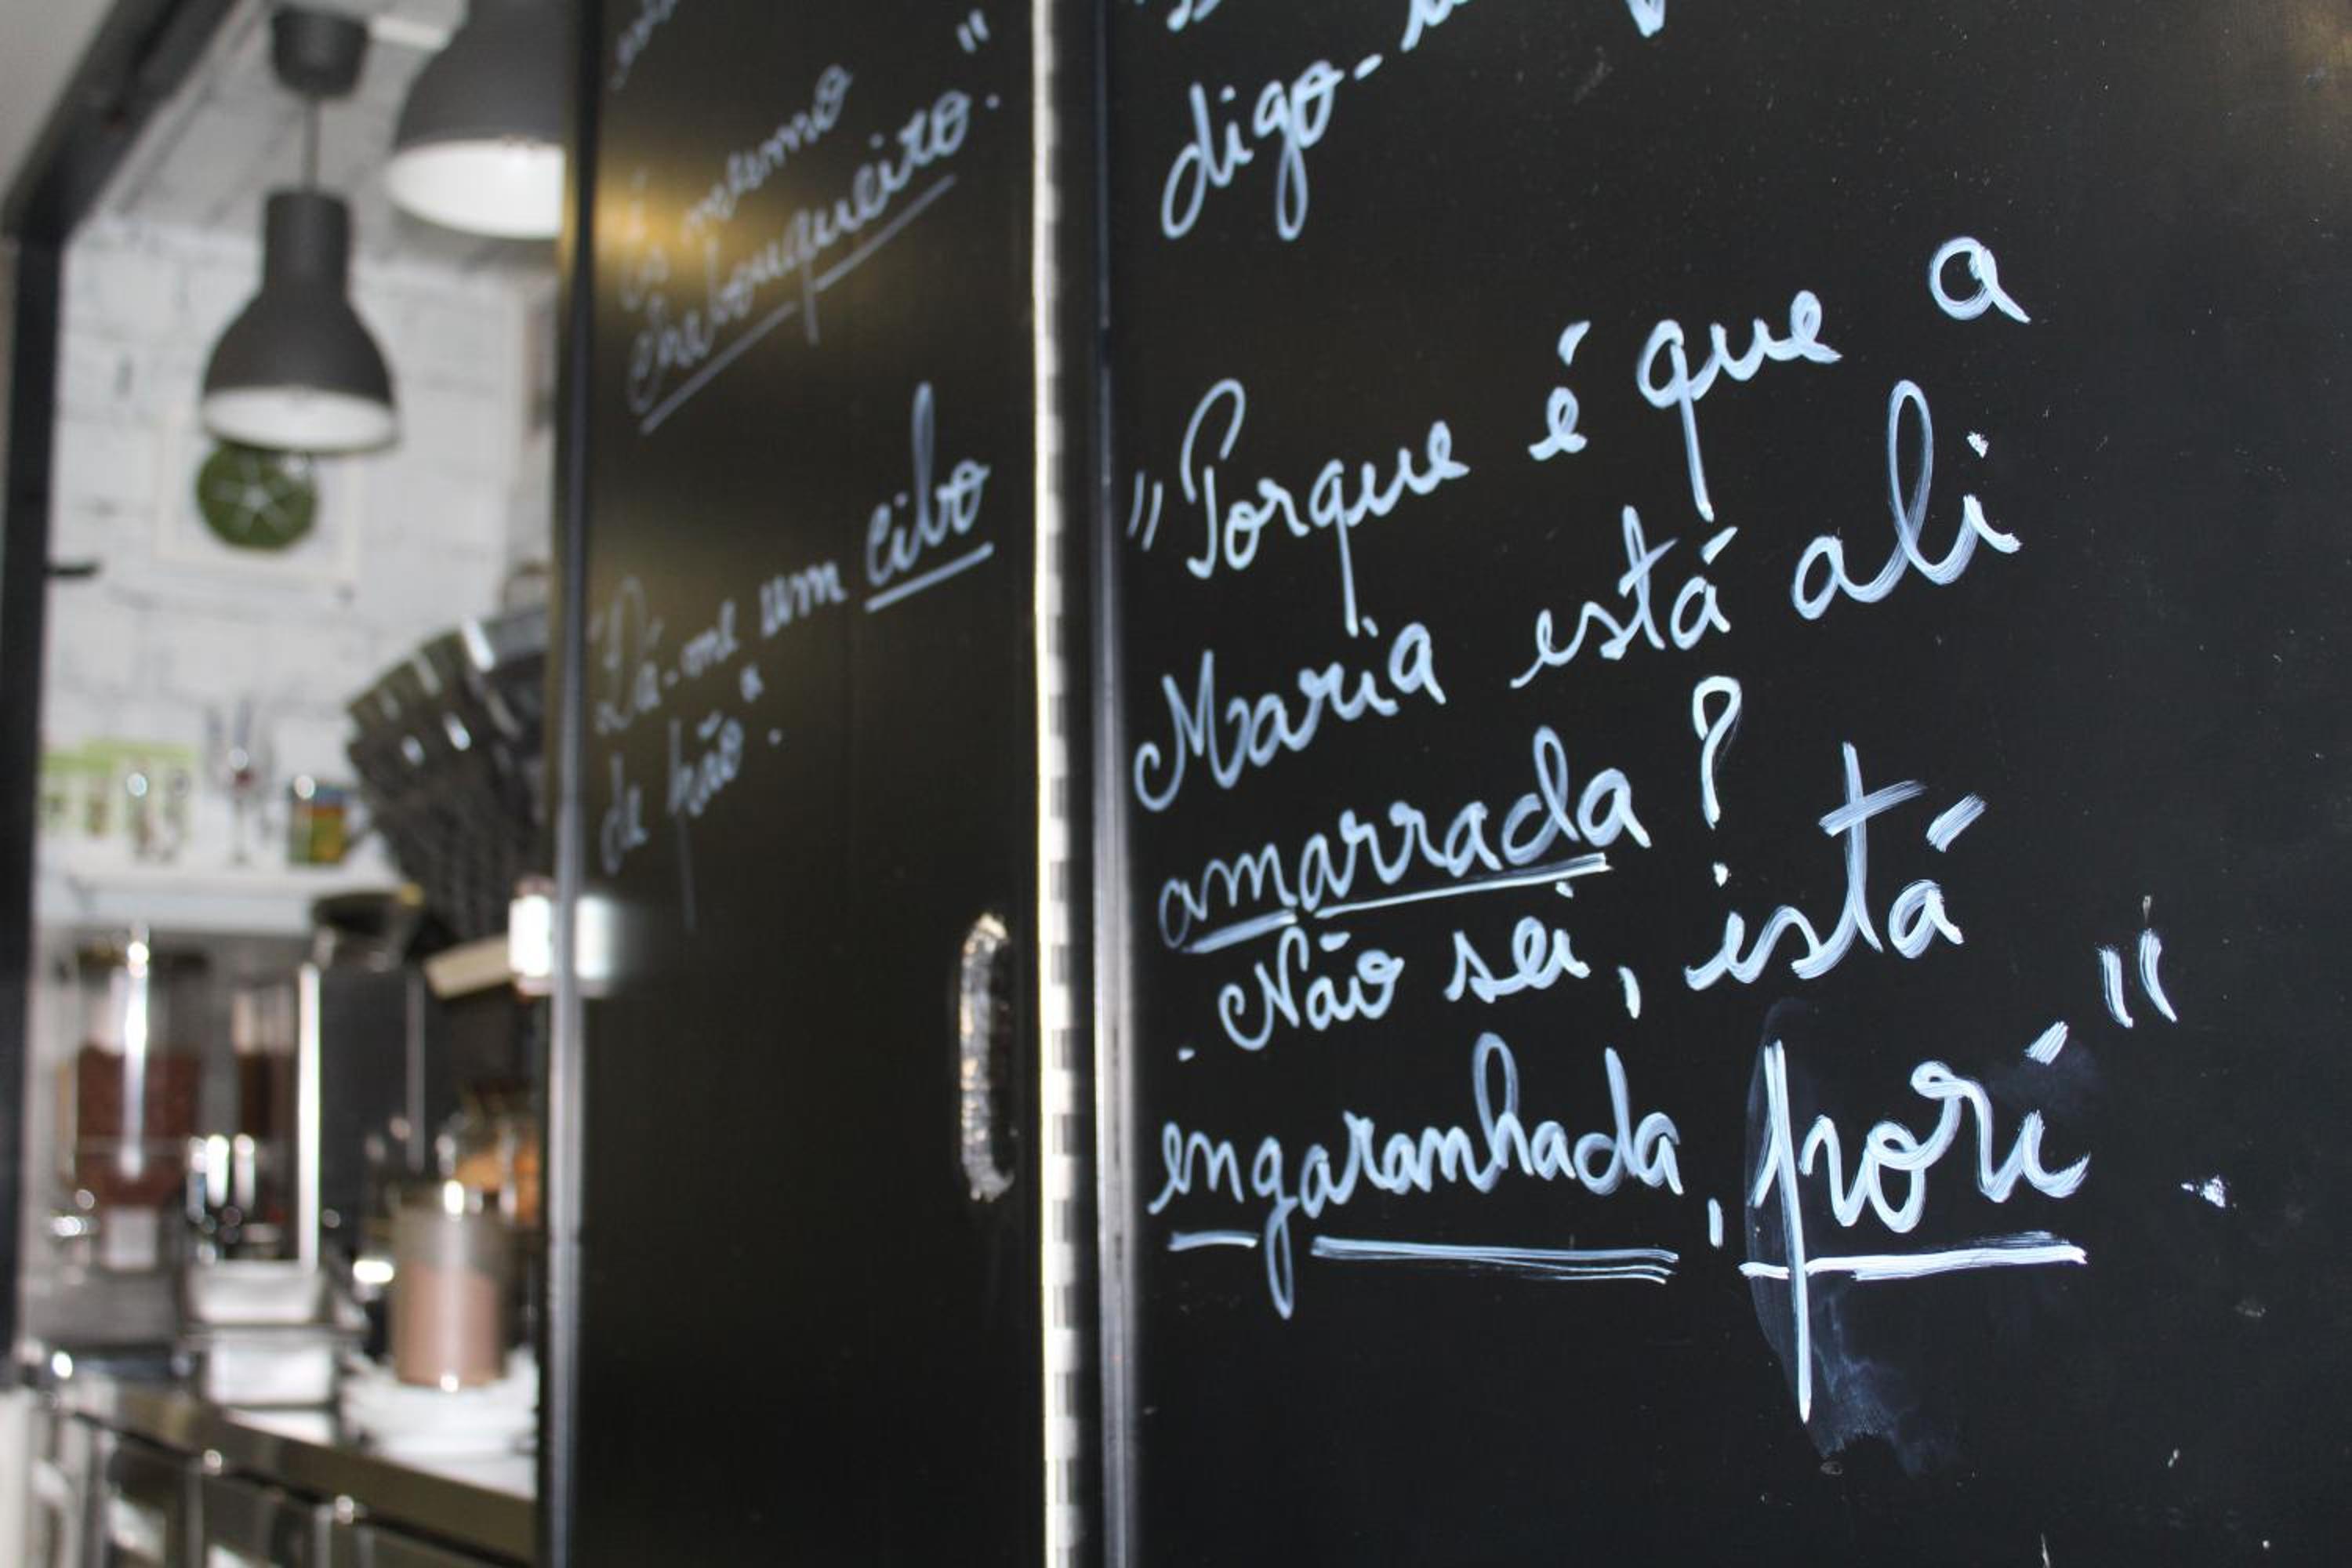 És mesmo
enchouqueiro."
"Dá-me um cibo
de pão".
digo-
"Porque é que a
Maria está ali
amarrada?
- Não sei, está
engaranhada, pori"